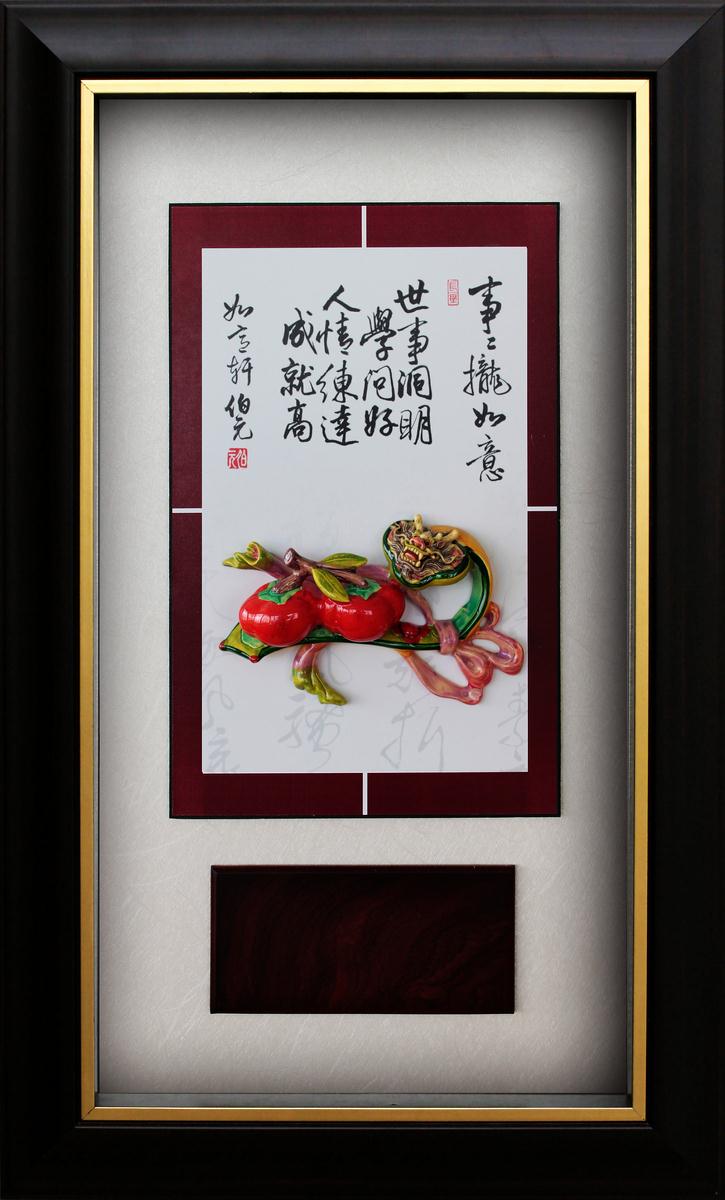 事〻攏如意
世事洞明
學問好
人情練達
成就高
如意軒 伯元
伯元